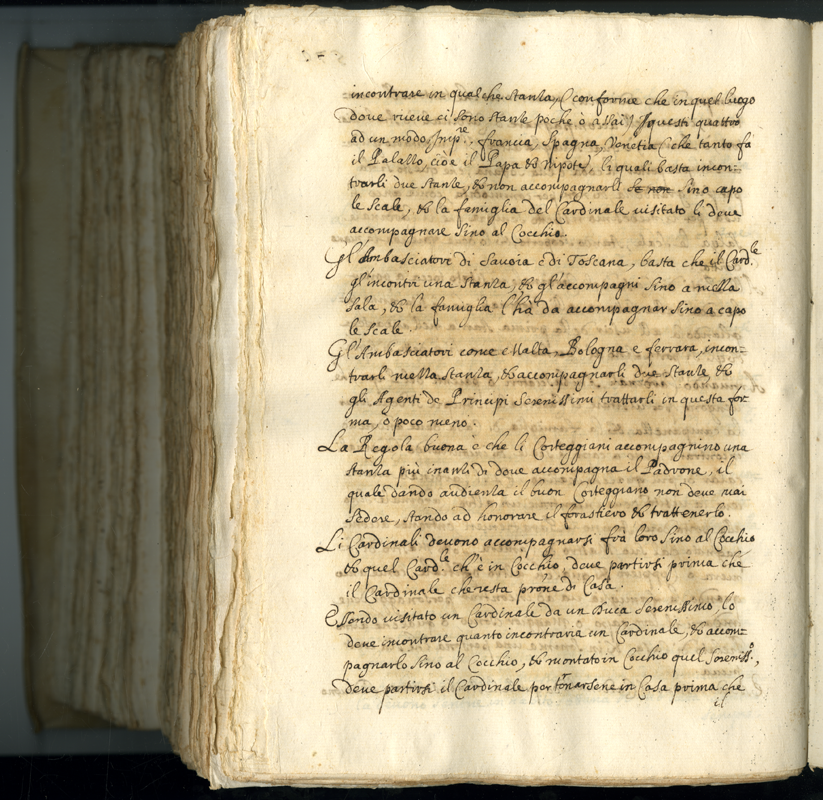 incontrare in qualche stanza, (conforme che in quel luogo
dove riceve ci sono stanze poche ò assai) questi quattro
ad un modo, Imp.re, francia, Spagna, Venetia (che tanto fà
il Palazzo, cioè il Papa & Nipote) li quali basta incon-
trarli due stanze, & non accompagnarli se non sino capo
le scale, & la famiglia del Cardinale visitato li deve
accompagnare sino al Cocchio.
Gl'Ambasciatori di Savoia e di Toscana, basta che il Card.le
gl'incontri una stanza, & gl'accompagni sino a mezza
sala, & la famiglia l'hà da accompagnar sino a capo
le scale.
Gl'Ambasciatori come Malta, Bologna e ferrara, incon-
trarli mezza stanza, & accompagnarli due stanze, &
gli Agenti de Principi Serenissimi trattarli in questa for-
ma, ò poco meno.
La Regola buona è che li Corteggiani accompagnino una
stanza più inanzi di dove accompagna il Padrone, il
quale dando audienza il buon Corteggiano non deve mai
sedere, stando ad honorare il forastiero & trattenerlo.
Li Cardinali devono accompagnarsi frà loro sino al Cocchio
& quel Card.le ch'è in Cocchio, deve partirsi prima che
il Cardinale che resta pr̃one di Casa.
Essendo visitato un Cardinale da un Duca Serenissimo, lo
deve incontrare quanto incontraria un Cardinale, & accom-
pagnarlo sino al Cocchio, & montato in Cocchio quel Sereniss.o,
deve partirsi il Cardinale per tõnarsene in Casa prima che
il